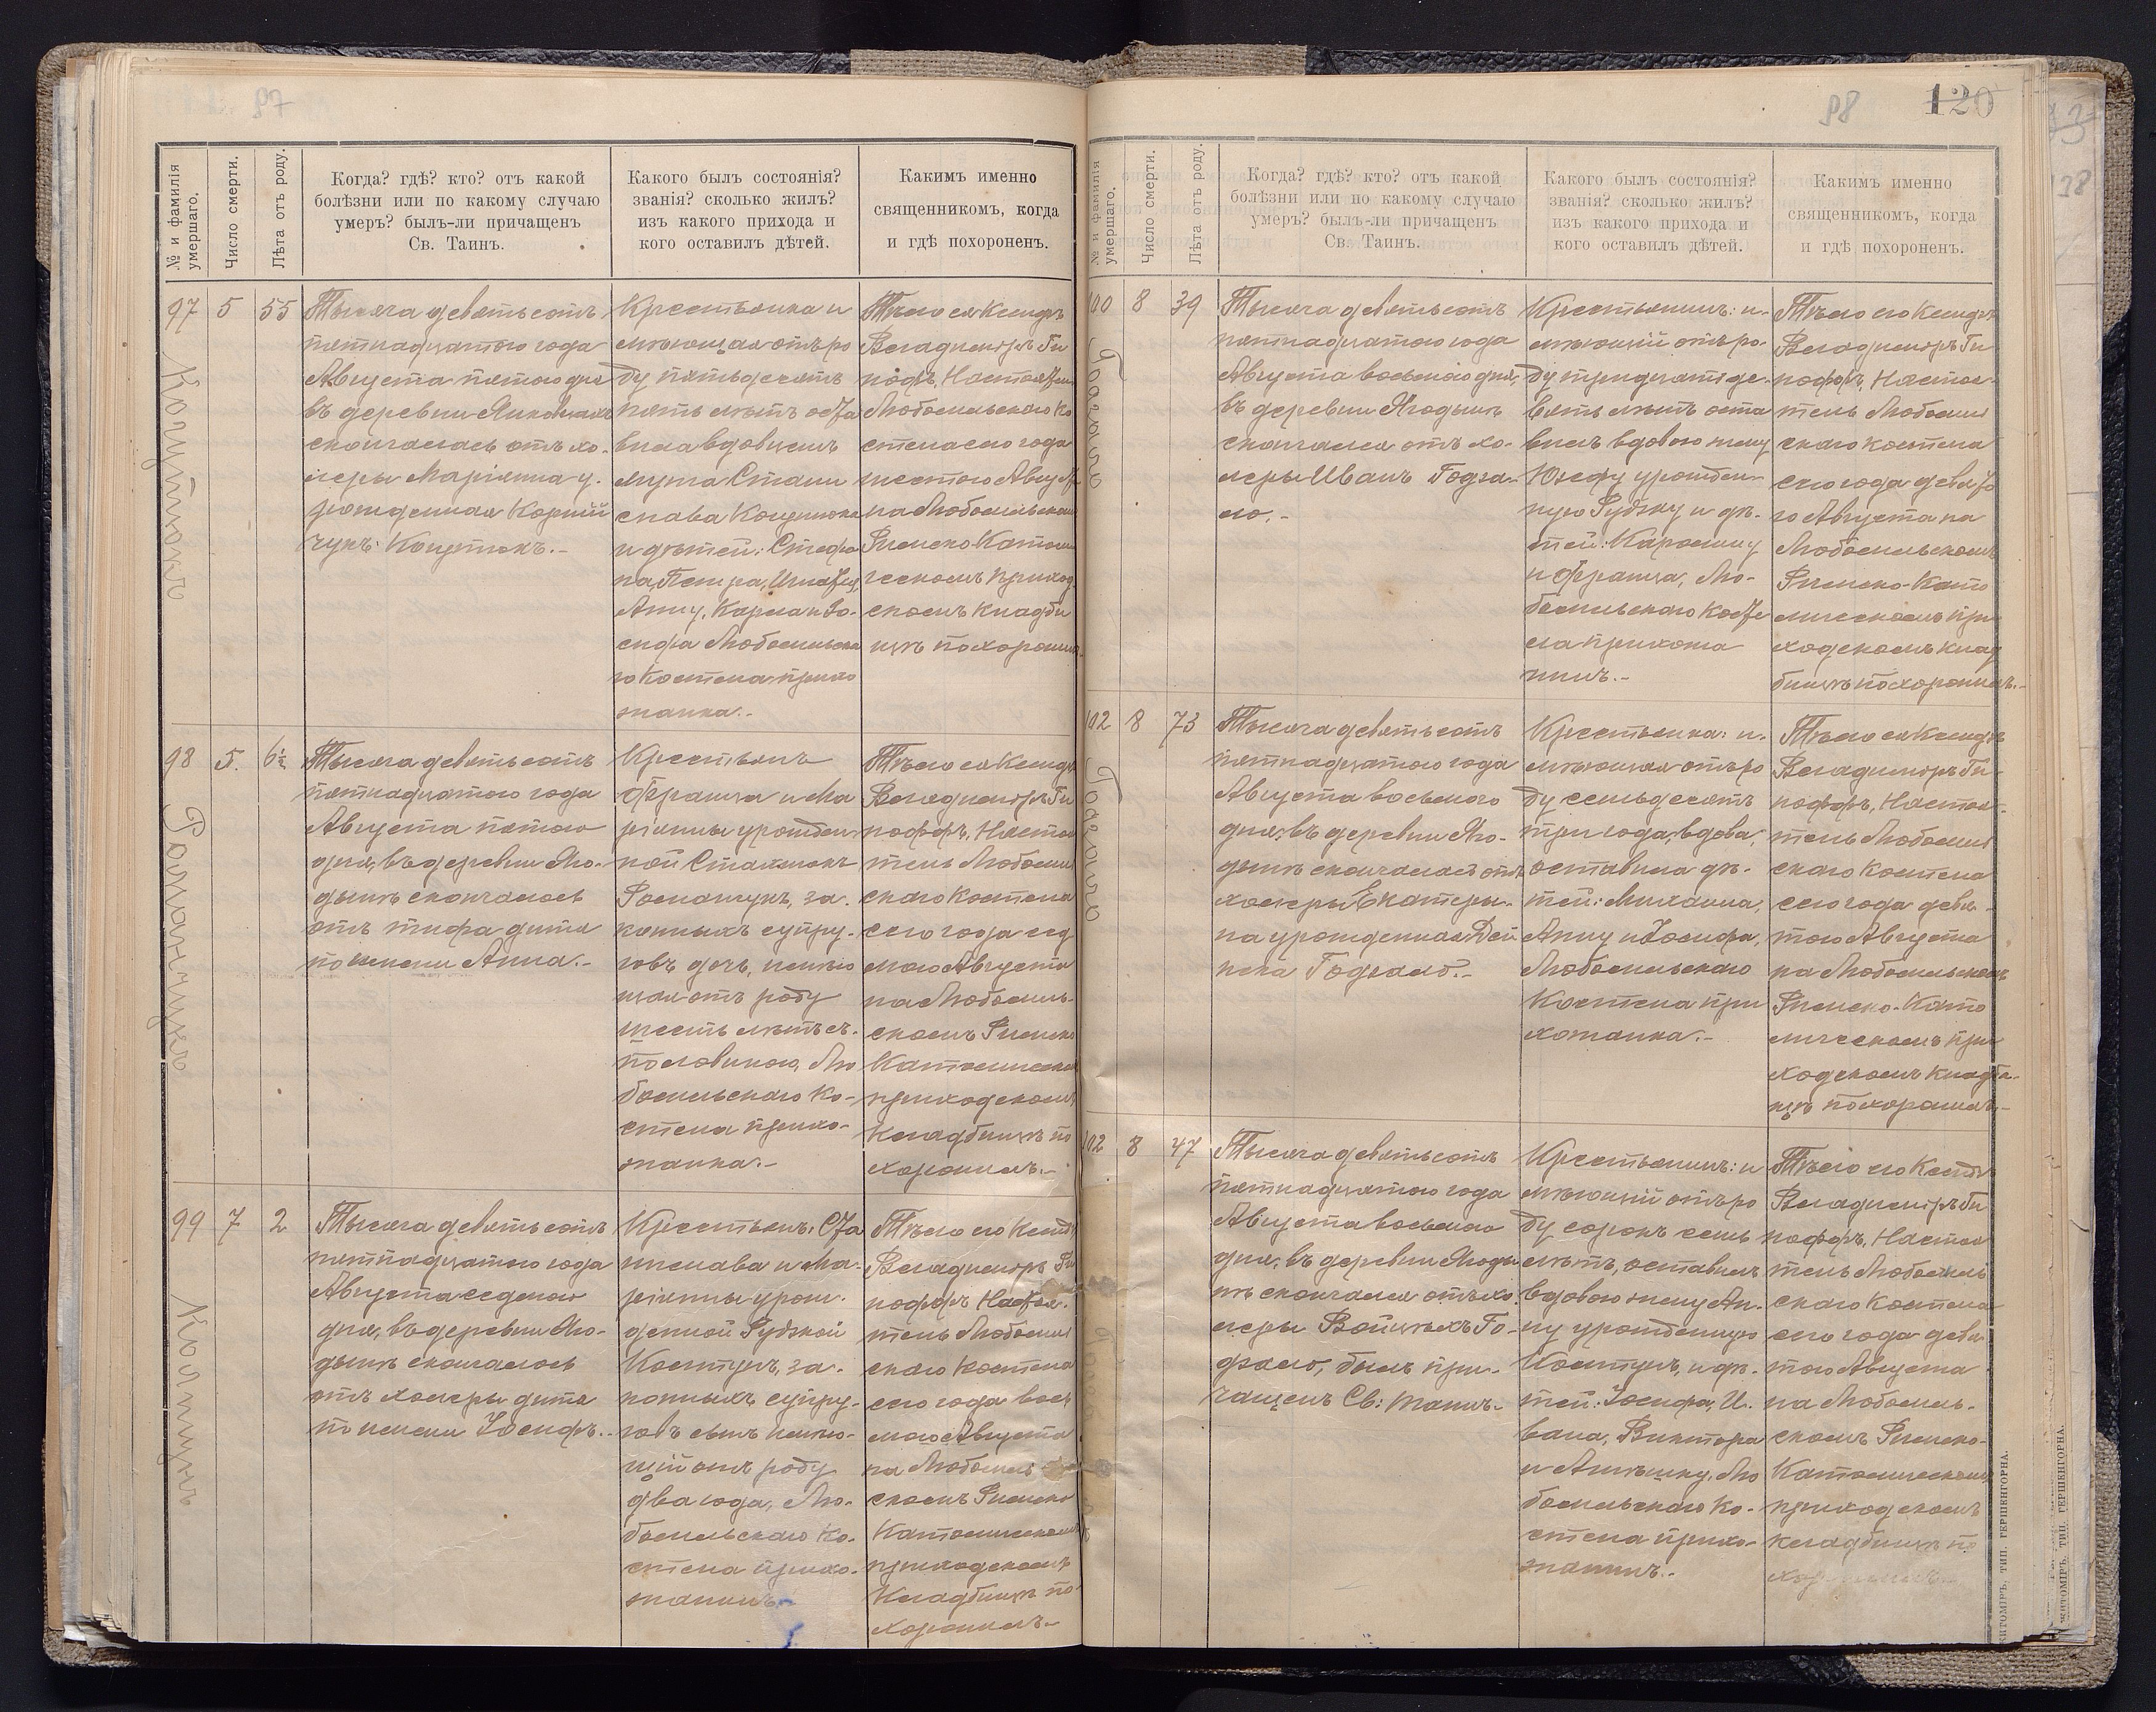 97
№ и фамилія умершаго.
Число смерти.
Лѣта отъ роду.
Когда? гдѣ? кто? отъ какой
болѣзни или по какому случаю
умеръ? былъ-ли причащенъ
Св. Таинъ.
Какого былъ состоянія?
званія? сколько жилъ?
изъ какого прихода и
кого оставилъ дѣтей.
Какимъ именно
священникомъ, когда
и гдѣ похороненъ.
97
5
55
Тысяча девятьсотъ
пятнадцатого года
Августа пятого дня
въ деревни
скончалась отъ хо-
леры Маріанна у-
рожденная Корній
чукъ:
Крестьянка и
мѣющая отъ ро
ду пятьдесятъ
пять лѣтъ оста
вила вдовцемъ
мужа Стани
слава
и дѣтей: Стефа
на, Петра,
Анну, Кароля и Іо-
сифа Любомльска
го Костела прихо
жанка.-
Тѣло ея Ксендзъ
Владиміръ Ги
пофъ, Настоятель
Любомльскаго Ко
стела сего года
шестого Августа
на Любомльском
Римско Катол
ческомъ приход
скомъ кладби
щѣ похоронил
98
5.
6½
Романчукъ
Тысяча девятьсотъ
пятнадцатого года
Августа пятого
дня, въ деревни Яго-
дынъ скончалось
отъ тифа дитя
по имени Анна.-
Крестьянъ
Франца и Ма
ріанны урожден-
ной Стахнюкъ
Романчукъ, за-
конныхъ супру-
говъ дочь, имѣю
щая отъ роду
шесть лѣтъ съ
половиною, Лю
бомльскаго Ко-
стела прихо-
жанка.-
Тѣло ея Ксендзъ
Владиміръ Ги
поффъ, Настоя
тель Любомль
скаго Костела
сего года сед
мого Августа
на Любомль-
скомъ Римско
Католическом
приходскомъ
Кладбищѣ по
хоронилъ.-
99
7
2
Костунъ
Тысяча девятьсотъ
пятнадцатого года
Августа седьмого
дня, въ деревни Яго-
дынъ скончалось
отъ холеры дитя
по имени Іосифъ.-
Крестьянъ: Ста
нислава и Ма-
ріанны урож-
денной Рудзкой
Костунъ, за-
конныхъ супру-
говъ сынъ имѣю-
щій отъ роду
два года, Лю-
бомльскаго Ко-
стела прихо-
жанинъ.-
Тѣло его Ксендзъ
Владиміръ Ги
поффъ Настоя-
тель Любомль
скаго Костела
сего года вось
мого Августа
на Любомль
скомъ Римско
Католическомъ
приходскомъ
Кладбищѣ по-
хоронилъ.-
98
120
№ и фамилія умершаго.
Число смерти.
Лѣта отъ роду.
Когда? гдѣ? кто? отъ какой
болѣзни или по какому случаю
умеръ? былъ-ли причащенъ
Св. Таинъ.
Какого былъ состоянія?
званія? сколько жилъ?
изъ какого прихода и
кого оставилъ дѣтей.
Какимъ именно
священникомъ, когда
и гдѣ похороненъ.
100
8
39
Годзало
Тысяча девятьсотъ
пятнадцатого года
Августа восьмого дня,
въ деревни Ягодынъ
скончался отъ хо-
леры Иванъ Годза-
ло.-
Крестьянинъ: и-
мѣющій отъ ро-
ду тридцать де-
вять лѣтъ оста
вилъ вдовою жену
Юзефу урожден-
ную Рудзку и дѣ-
тей: Каролину
и Франца, Лю-
бомльскаго Косте
ла прихожа
нинъ.-
Тѣло его Ксендзъ
Владиміръ Ги
поффъ, Настоя-
тель Любомль
скаго Костела
сего года девято
го Августа на
Любомльскомъ
Римско-Като
лическомъ при
ходскомъ клад
бищѣ похоронилъ.-
102
8
73
Годзало
Тысяча девятьсотъ
пятнадцатого года
Августа восьмого
дня, въ деревни Яго-
дынъ скончалась отъ
холеры Екатери-
на урожденная
Годзало.-
Крестьянка: и-
мѣющая отъ ро
ду семьдесятъ
три года, вдова,
оставила дѣ-
тей: Михаила,
Анну и Іосифа,
Любомльскаго
Костела при
хожанка.-
Тѣло ея Ксендзъ
Владиміръ Ги-
поффъ, Настоя-
тель Любомль
скаго Костела
сего года девя-
того Августа
на Любомльскомъ
Римско-Като
лическомъ при
ходскомъ Кладби-
щѣ похоронилъ.-
102
8
47
Тысяча девятьсотъ
пятнадцатого года
Августа восьмого
дня, въ деревни Ягоды
нѣ скончался отъ хо
леры Войцѣхъ Го-
дзало, былъ при-
чащенъ Св: Таинъ.-
Крестьянинъ: и
мѣющій отъ ро
ду сорокъ семь
лѣтъ, оставилъ
вдовою жену Ан-
ну урожденную
Костунъ, и дѣ-
тей: Іосифа, И-
вана, Виктора
и Антонину, Лю
бомльскаго Ко-
стела прихо-
жанинъ.-
Тѣло его Ксендзъ
Владиміръ Ги
поффъ, Настоя
тель Любомль
скаго Костела
сего года девя
того Августа
на Любомль-
скомъ Римско-
Католическомъ
приходскомъ
кладбищѣ по
хоронилъ.-
ЖИТОМІРЪ. ТИП. ГЕРШЕНГОРНА.
ЖИТОМІРЪ. ТИП. ГЕРШЕНГОРНА.